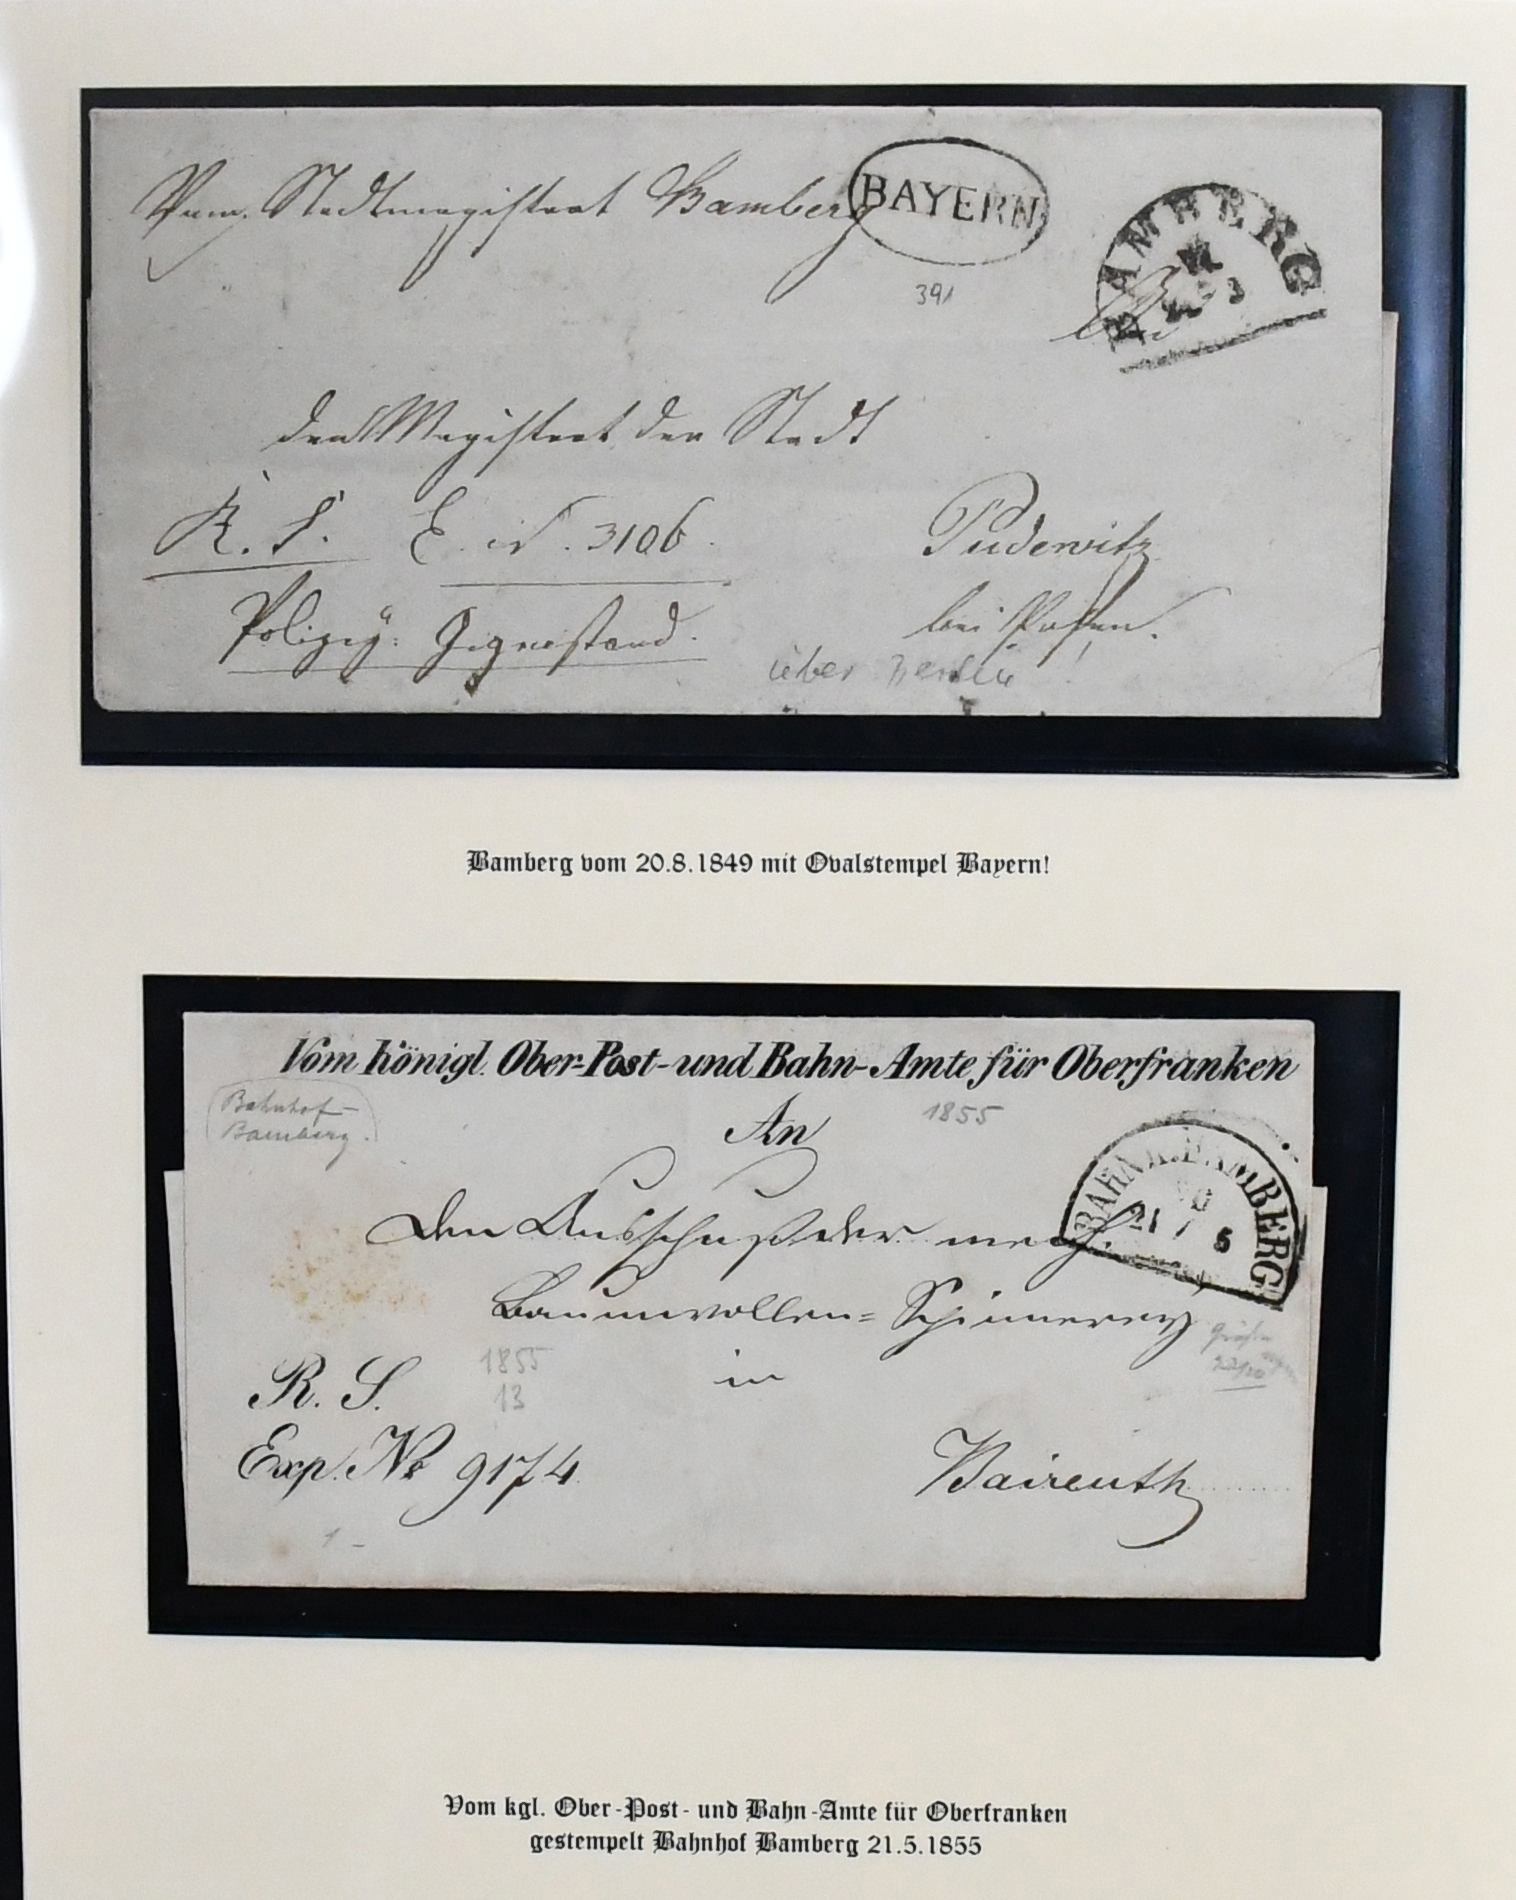 Vom Stadtmagistrat Bamberg
BAYERN
BAMBERG
391
An
den Magistrat der Stadt
R. S. E. N. 3106.
Pudewitz
Polizey: Gegenstand.
bei Posen.
über Berlin !
Bamberg vom 20.8.1849 mit Ovalstempel Bayern!
Vom Königl. Ober-Post- und Bahn-Amte für Oberfranken
Bahnhof-
Bamberg.
An
1855
BAHNH. BAMBERG
21 5
den Ausschuß der mech.
Baumwollen= Spinnerey
in
R. S.
1855
13
Exp. No 9174
Baireuth
Vom kgl. Ober-Post- und Bahn-Amte für Oberfranken
gestempelt Bahnhof Bamberg 21.5.1855